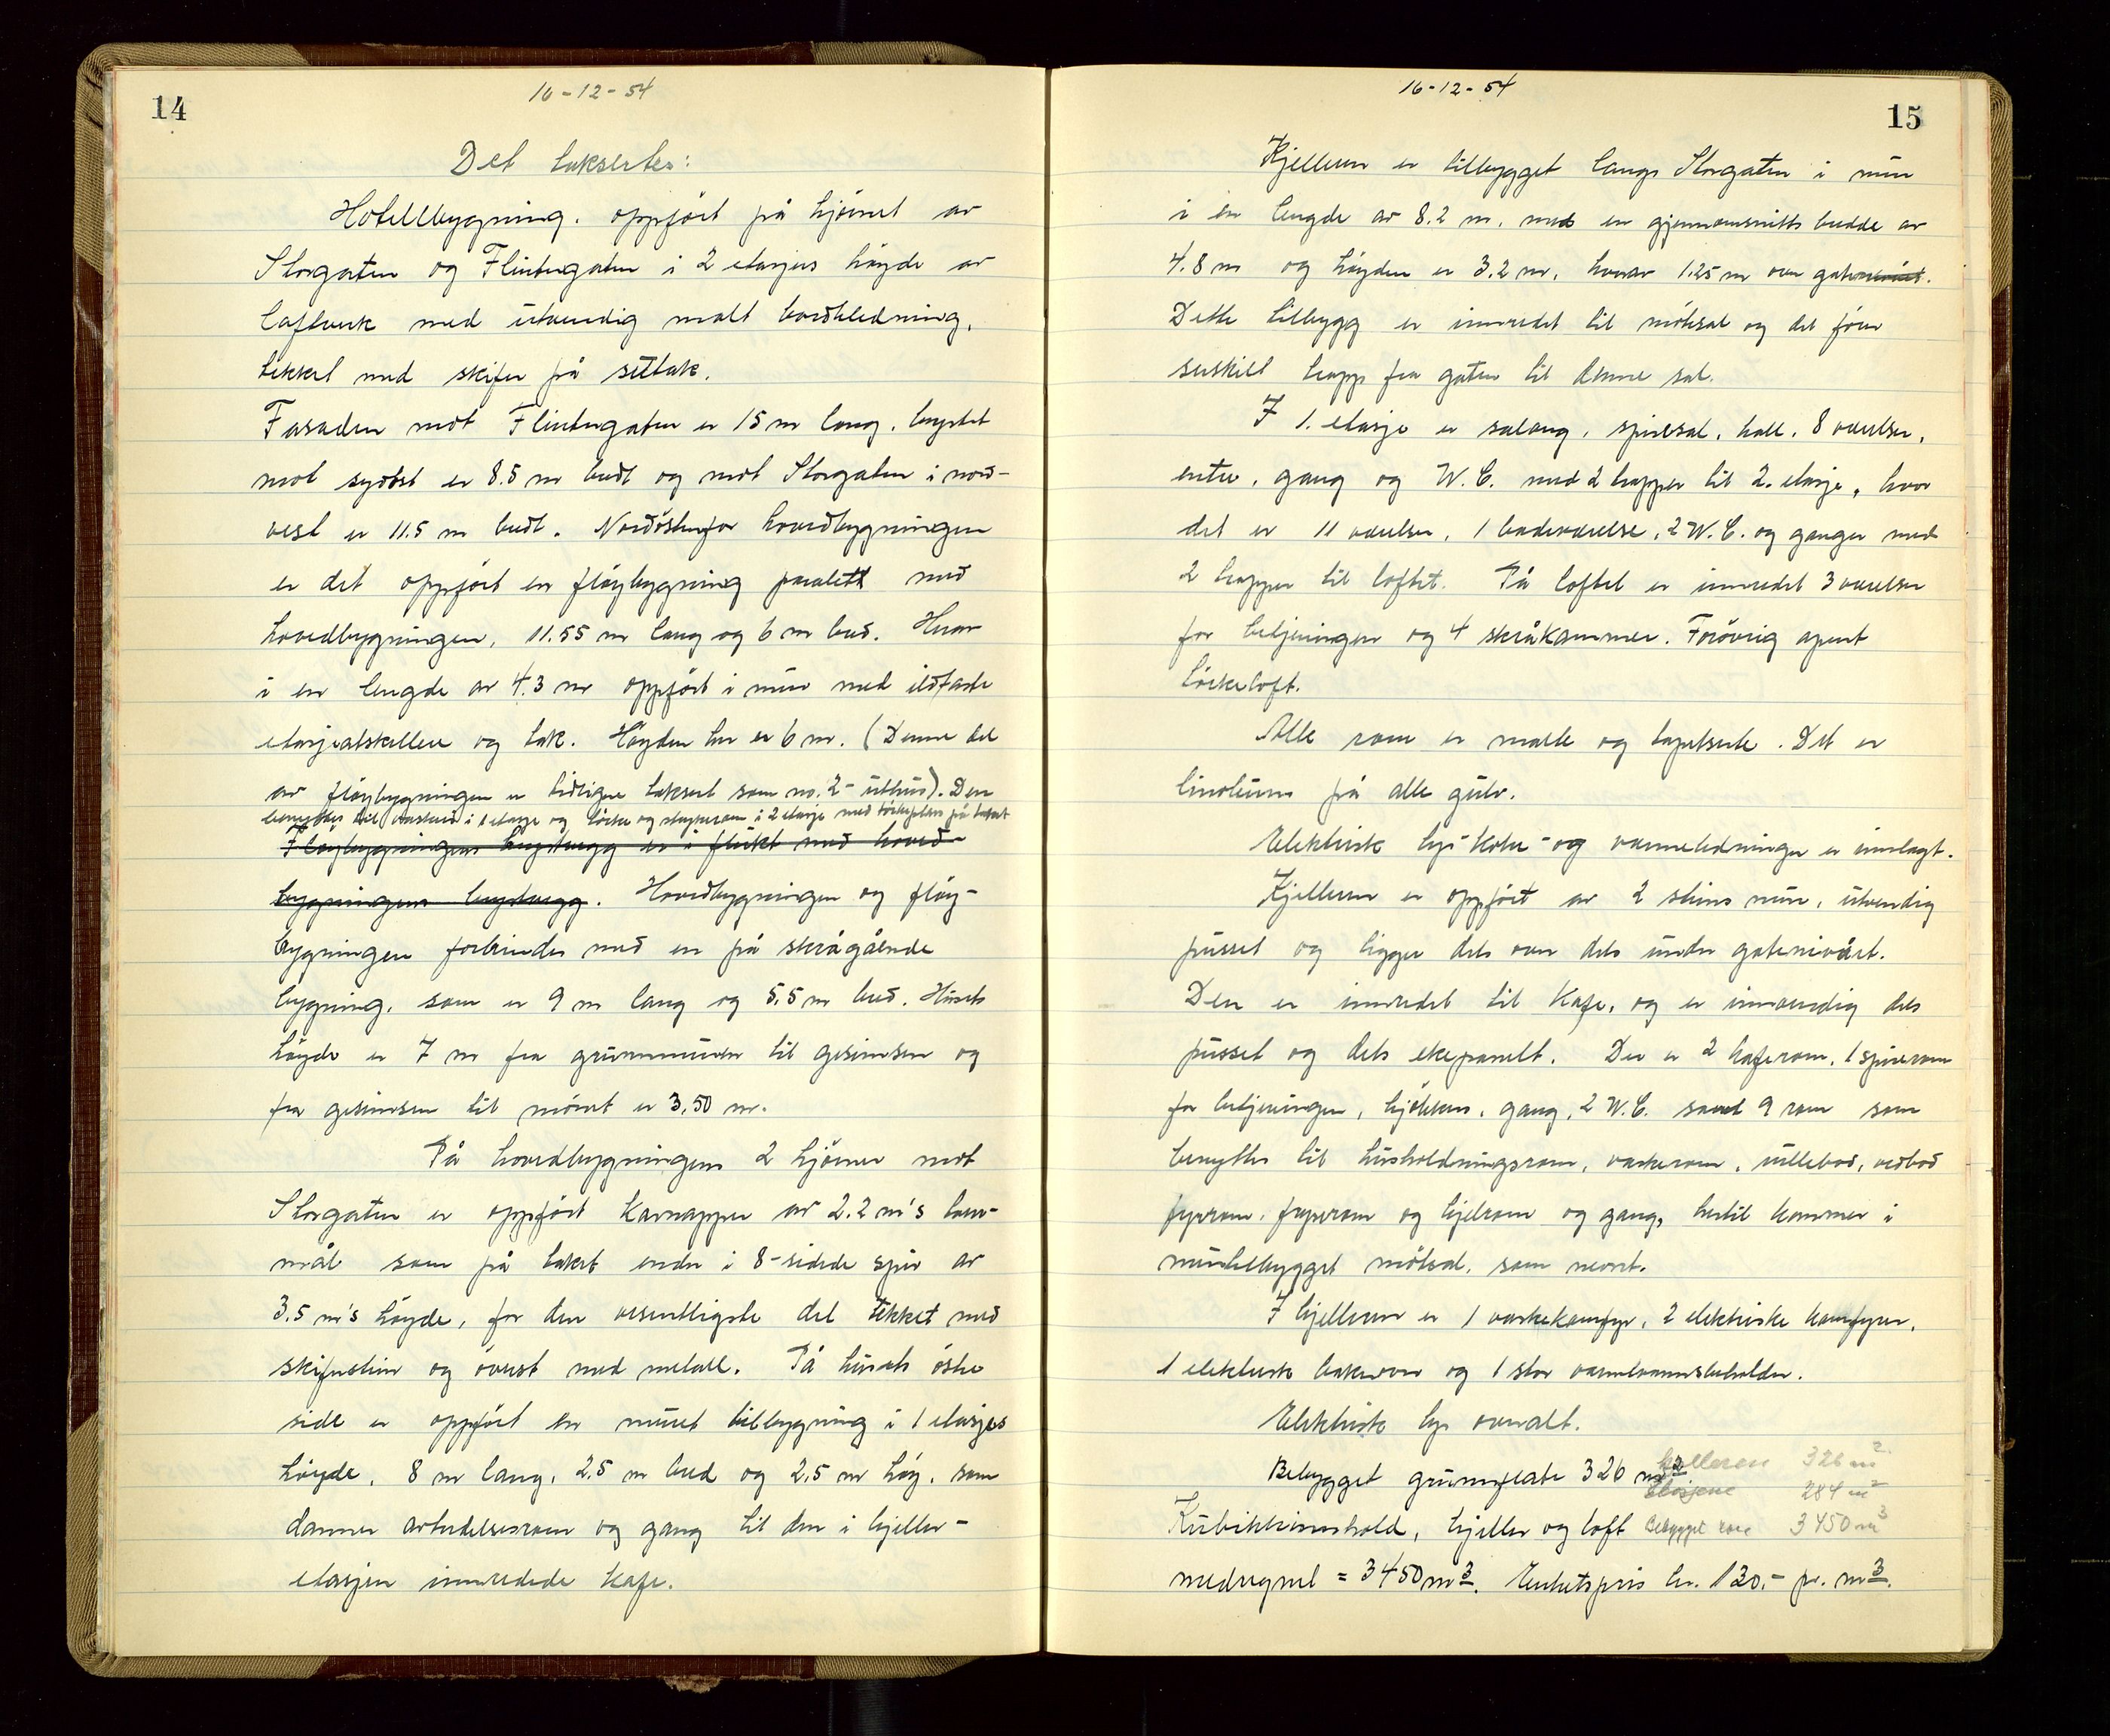 14
16-12-54
Det takseres:
Hotellbygning, oppført på hjørnet av
Storgaten og Flintegaten i 2 etasjers høyde av
laftverk med utvendig malt bordkledning,
tekket med skifer på sutak.
Fasaden mot Flintegaten er 15 m lang, brystet
mot sydost er 8.5 m bredt og mot Storgaten i nord-
vest er 11.5 m bredt. Nordöstenfor hovedbygningen
er det oppført en fløybygning paralelt med
hovedbygningen, 11.55 m lang og 6 m bred. Hvorav
i en lengde av 4.3 m oppført i mur med ildfaste
etasjeatskillere og tak. Høyden her er 6 m. (Denne del
av fløybygningen er tidligere taksert som no. 2 - uthus). Den
benyttes til vaskeri i 1 etasje og tørke og strykerom i 2 etasje med tørkeplass på taket
Fløybygningens langvegg er i flukt med hoved-
bygningens langvegg. Hovedbygningen og fløy-
bygningen forbindes med en på skrågående
bygning, som er 9 m lang og 5,5 m bred. Husets
høyde er 7 m fra grunnmuren til gesimsen og
fra gesimsen til mønet er 3,50 m.
På hovedbygningens 2 hjörner mot
Storgaten er oppført karnapper av 2.2 m's tverr-
mål som på taket ender i 8-sidede spir av
3.5 m's høyde, for den vesentligste del tekket med
skiferstein og øverst med metall. På husets östre
side er oppført en muret tilbygning i 1 etasjes
høyde, 8 m lang, 2,5 m bred og 2,5 m høy, som
danner arbeidelsesrom og gang til den i kjeller-
etasjen innredede kafe.
16-12-54
15
Kjelleren er tilbygget langs Storgaten i mur
i en lengde av 8.2 m, med en gjennomsnitts bredde av
4.8 m og høyden er 3.2 m, hvorav 1.25 m over gatenivået.
Dette tilbygg er innredet til møtesal og det fører
serskilt trapp fra gaten til denne sal.
I 1. etasje er salong, spisesal, hall, 8 værelser,
entre, gang og W.C. med 2 trapper til 2. etasje, hvor
det er 11 værelser, 1 badeværelse, 2 W.C. og ganger med
2 trapper til loftet. På loftet er innredet 3 værelser
for betjeningen og 4 skråkammer. Forøvrig apent
tørkeloft.
Alle rom er malte og tapetserte. Det er
linoleum på alle gulv.
Elektrisk lys- koke- og varmeledninger er innlagt.
Kjelleren er oppført av 2 stens mur, utvendig
pusset og ligger dels over dels under gatenivået.
Den er innredet til kafe, og er innvendig dels
pusset og dels ekepanelt. Der er 2 kaferom, 1 spiserom
for betjeningen, kjøkken, gang, 2 W.C. samt 9 rom som
benyttes til husholdningsrom, vaskerom, rullebod, vedbod
fyrrom, fryserom og kjølrom og gang, hertil kommer i
murtilbygget møtesal, som nevnt.
I kjelleren er 1 vaskekomfyr, 2 elektriske komfyrer,
1 elektrisk bakerovn og 1 stor varmtvannsbeholder.
Elektrisk lys overalt.
Bebygget grunnflate 326 m2.
Kjelleren 326 m2
Etasjene 284 m2
Kubikkinnhold, kjeller og loft
Bebygget rom 3450 m3
medregnet = 3450 m3. Enhetspris kr. 130.- pr. m3.